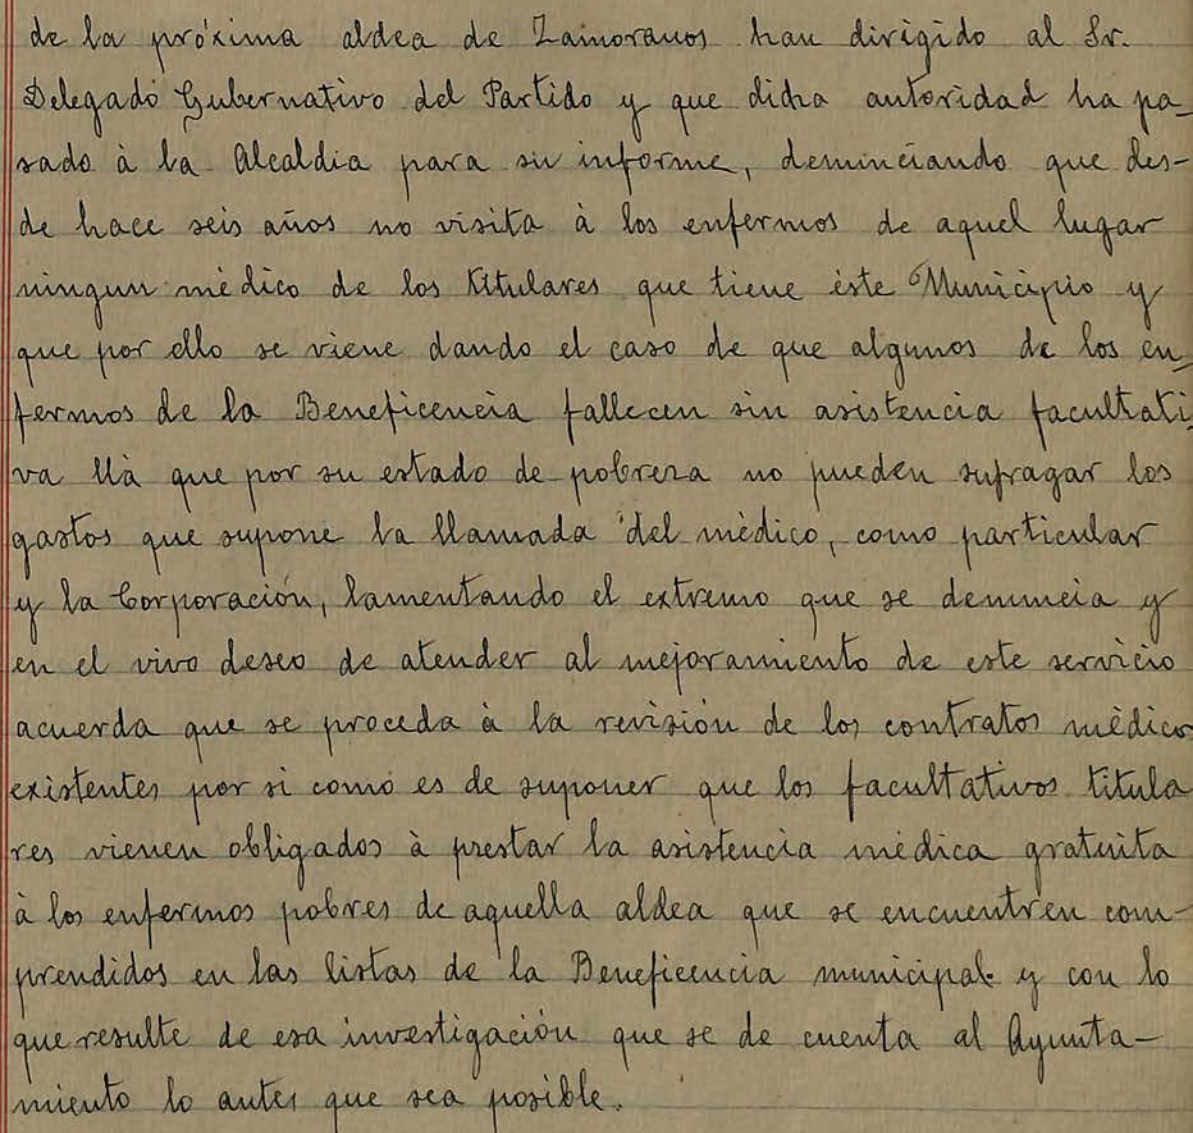 de la próxima aldea de Zamoranos han dirigido al Sr.
Delegado Gubernativo del Partido y que dicha autoridad ha pa-
sado à la Alcaldia para su informe, denunciando que des-
de hace seis años no visita à los enfermos de aquel lugar
ningun mèdico de los titulares que tiene èste Municipio y
que por ello se viene dando el caso de que algunos de los en-
fermos de la Beneficencia fallecen sin asistencia facultati-
va llà que por su estado de pobreza no pueden sufragar los
gastos que supone la llamada del mèdico, como particular
y la Corporación, lamentando el extremo que se denuncia y
en el vivo deseo de atender al mejoramiento de este servicio
acuerda que se proceda à la revisión de los contratos mèdicos
existentes por si como es de suponer que los facultativos titula
res vienen obligados à prestar la asistencia mèdica gratuita
à los enfermos pobres de aquella aldea que se encuentren com-
prendidos en las listas de la Beneficencia municipal y con lo
que resulte de esa investigación que se de cuenta al Ayunta-
miento lo antes que sea posible.